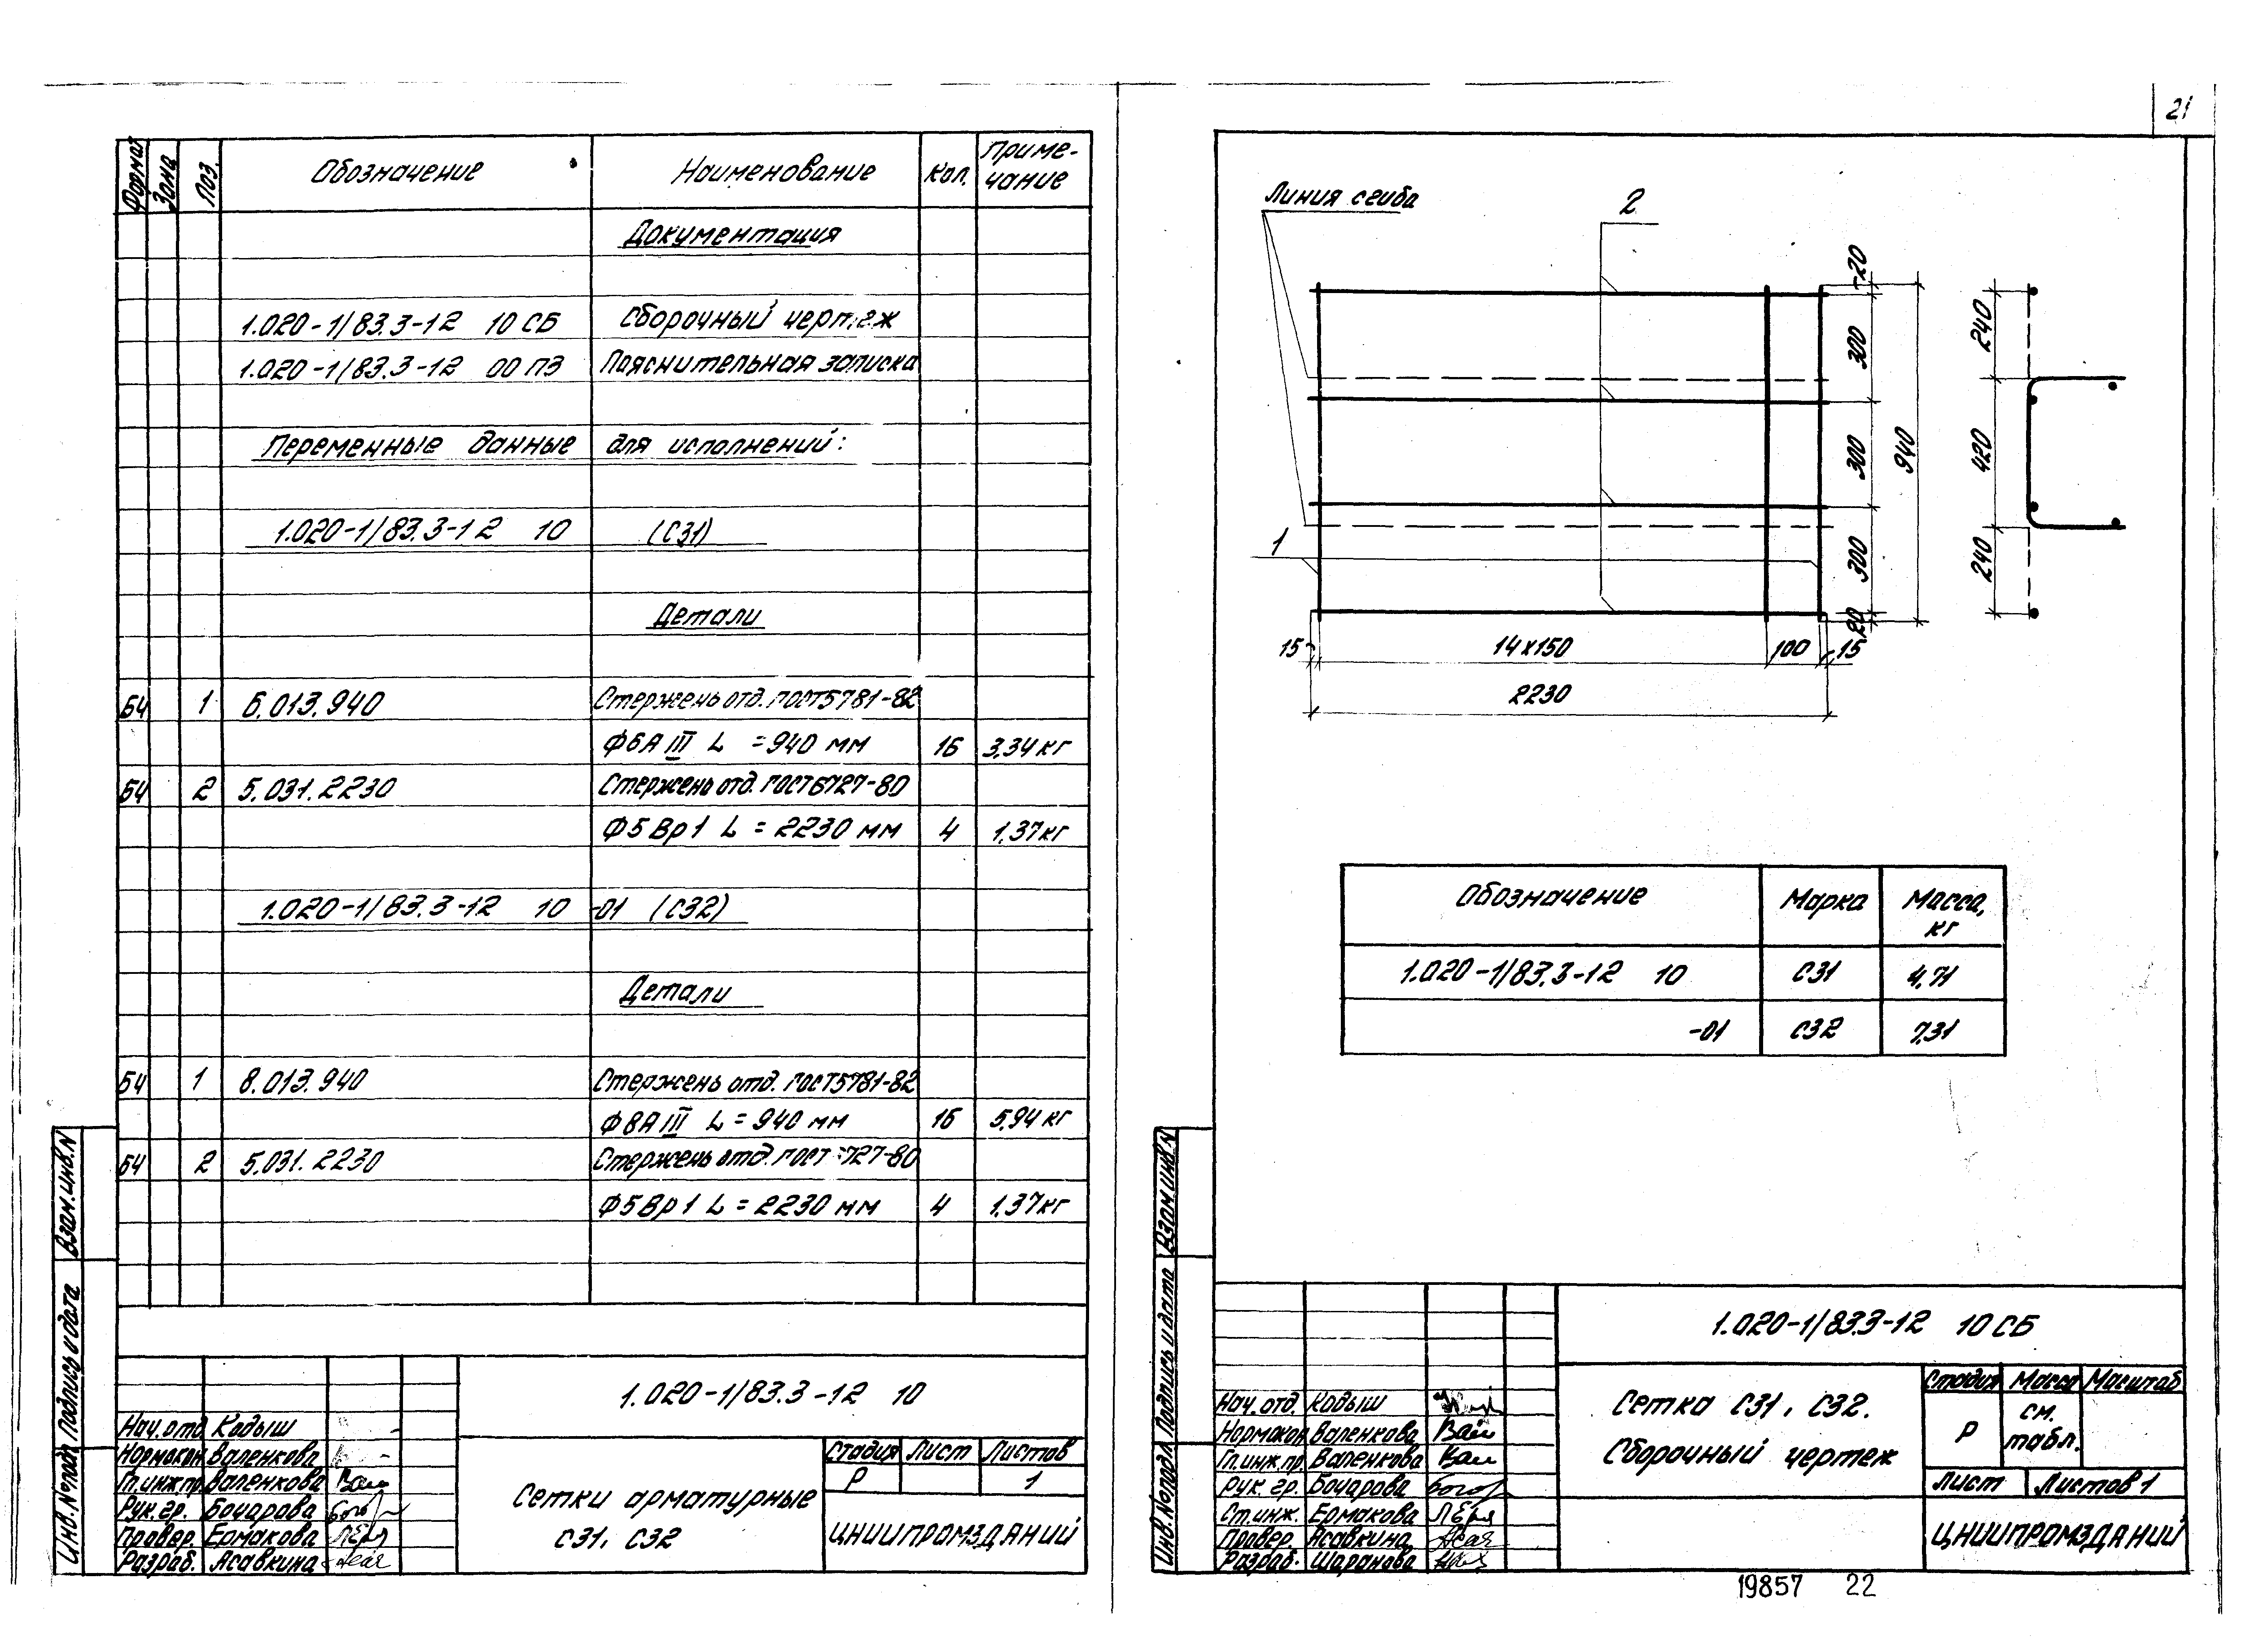 21
Формат Зона Поз. Обозначение Наименование Кол. Приме-
чание
Документация
1.020-1/83.3-12 10 СБ Сборочный чертеж
1.020-1/83.3-12 00 ПЗ Пояснительная записка
Переменные данные для исполнений:
1.020-1/83.3-12 10 (С31)
Детали
Б4 1 6.013.940 Стержень отд. ГОСТ5781-82
Ф6АIII L =940 мм 16 3,34 кг
Б4 2 5.031.2230 Стержень отд. ГОСТ6727-80
Ф5Вр1 L = 2230 мм 4 1,37кг
1.020-1/83.3-12 10 -01 (С32)
Детали
Б4 1 8.013.940 Стержень отд. ГОСТ5781-82
Ф8АIII L = 940 мм 16 5,94 кг
Б4 2 5.031.2230 Стержень отд. ГОСТ 727-80
Ф5Вр1 L = 2230 мм 4 1,37кг
Взам.инв.N
Подпись и дата
Инв.№подл
1.020-1/83.3-12 10
Нач.отд. Кодыш
Нормокон Валенкова
Гл.инж.пр. Валенкова
Рук.гр. Бочарова
Провер. Ермакова
Разраб. Асавкина
Сетки арматурные
С31, С32
Стадия Лист Листов
Р 1
ЦНИИПРОМЗДАНИЙ
Линия сгиба
2
1
20
300
300
300
20
940
240
420
240
15 14х150 100 15
2230
Обозначение Марка Масса,
кг
1.020-1/83.3-12 10 С31 4,71
-01 С32 7,31
Взам.инв.N
Подпись и дата
Инв.№подл
1.020-1/83.3-12 10 СБ
Нач.отд. Кодыш
Нормокон Валенкова
Гл.инж.пр. Валенкова
Рук.гр. Бочарова
Ст.инж. Ермакова
Провер. Асавкина
Разраб. Шаранова
Сетка С31, С32.
Сборочный чертеж
Стадия Масса Масштаб
Р см.
табл.
Лист Листов 1
ЦНИИПРОМЗДАНИЙ
19857 22